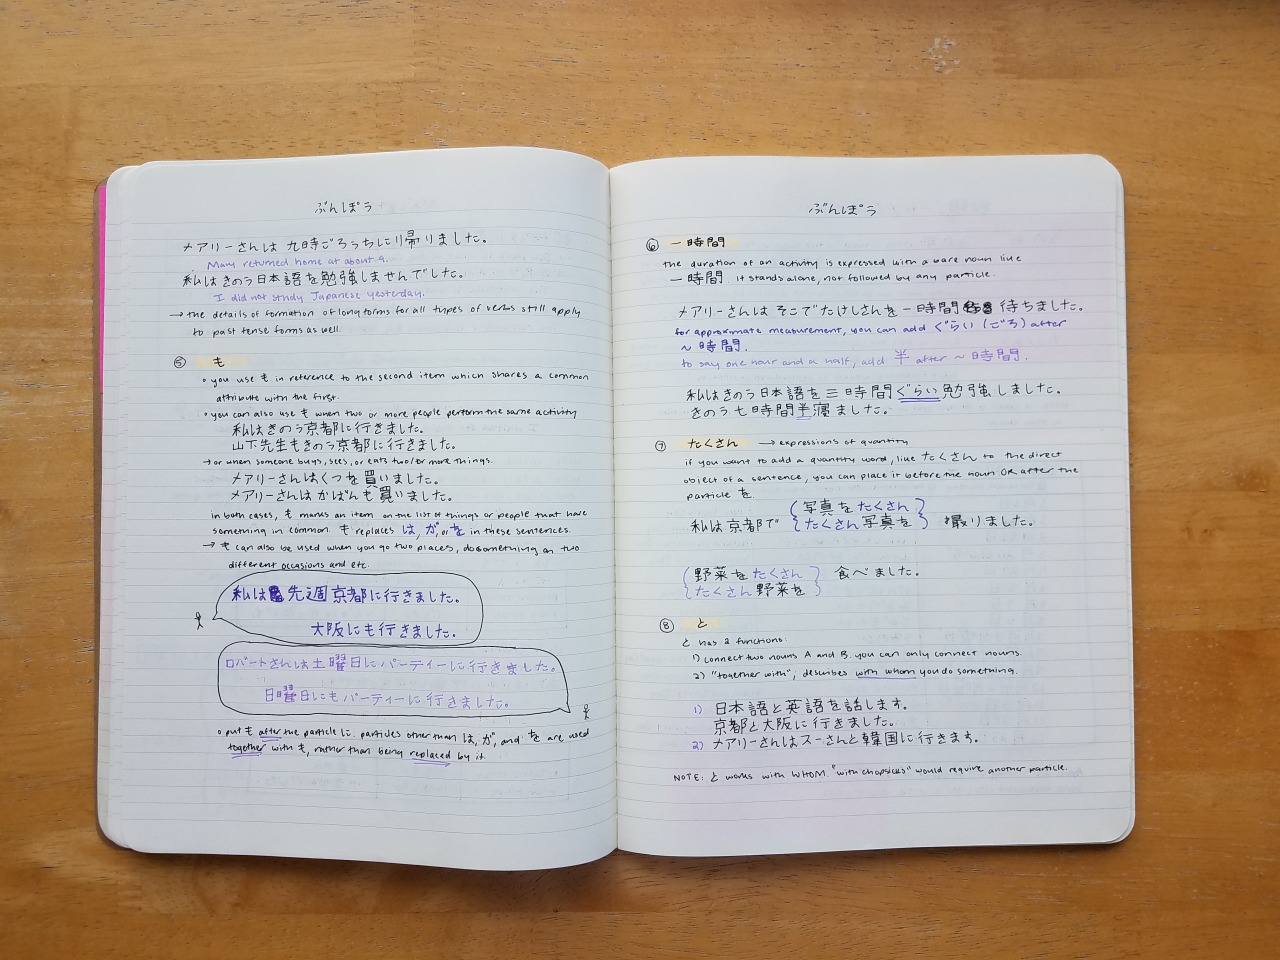 ぶんぽう
メアリーさんは九時ごろうちに帰りました。
Mary returned home at about 9.
私はきのう日本語を勉強しませんでした。
I did not study Japanese yesterday.
→ the details of formation of long forms for all types of verbs still apply
to past tense forms as well.
⑤ も
• you use も in reference to the second item which shares a common
attribute with the first.
• you can also use も when two or more people perform the same activity
私はきのう京都に行きました。
山下先生もきのう京都に行きました。
→ or when someone buys, sees, or eats two/or more things.
メアリーさんはくつを買いました。
メアリーさんはかばんも買いました。
in both cases, も marks an item on the list of things or people that have
something in common. も replaces は, が, or を in these sentences.
→ も can also be used when you go two places, do something on two
different occasions and etc.
私は先週京都に行きました。
大阪にも行きました。
ロバートさんは土曜日にパーティーに行きました。
日曜日にもパーティーに行きました。
• put も after the particle に. particles other than は, が, and を are used
together with も, rather than being replaced by it.
ぶんぽう
⑥ 一時間
the duration of an activity is expressed with a bare noun like
一時間. it stands alone, not followed by any particle.
メアリーさんはそこでたけしさんを一時間待ちました。
for approximate measurement, you can add ぐらい (ごろ) after
~ 時間.
to say one hour and a half, add 半 after ~ 時間.
私はきのう日本語を三時間ぐらい勉強しました。
きのう七時間半寝ました。
⑦ たくさん → expressions of quantity
if you want to add a quantity word, like たくさん to the direct
object of a sentence, you can place it before the noun OR after the
particle を.
写真をたくさん
私は京都で たくさん写真を 撮りました。
野菜をたくさん 食べました。
たくさん野菜を
⑧ と
と has 2 functions:
1) connect two nouns A and B. you can only connect nouns.
2) "together with", describes with whom you do something.
1) 日本語と英語を話します。
京都と大阪に行きました。
2) メアリーさんはスーさんと韓国に行きます。
NOTE: と works with WHOM. "with chopsticks" would require another particle.